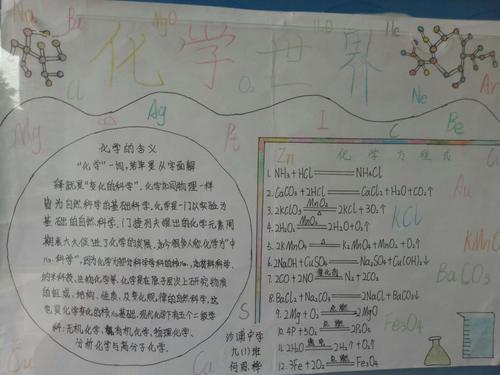 Na
Ba
MgO
H₂O
He
化学世界
Cl
O₂
Ne
Ar
Mg
Ag
Pt
I
C
Be
化学的含义
"化学"一词,若单是从字面解
释就是"变化的科学".化学如同物理一样
皆为自然科学的基础科学.化学是一门以实验为
基础的自然科学.门捷列夫提出的化学元素周
期表大大促进了化学的发展.如今很多人称化学为"中
心科学",因为化学为部分科学学科的核心,如材料科学、
纳米科技、生物化学等.化学是在原子层次上研究物质
的组成、结构、性质、及变化规律的自然科学,这
也是化学变化的核心基础.现代化学下有五个二级学
科:无机化学、有机化学、物理化学、
分析化学与高分子化学.
Zn
化学方程式
1. NH₃ + HCl═NH₄Cl
2. CaCO₃ + 2HCl═CaCl₂ + H₂O + CO₂↑
3. 2KClO₃ MnO₂═△ 2KCl + 3O₂↑
4. 2H₂O₂ MnO₂═ 2H₂O + O₂↑
5. 2KMnO₄ ═△ K₂MnO₄ + MnO₂ + O₂↑
6. 2NaOH + CuSO₄═Na₂SO₄ + Cu(OH)₂↓
7. 2CO + 2NO 催化剂═ N₂ + 2CO₂
8. BaCl₂ + Na₂CO₃═2NaCl + BaCO₃↓
9. 2Mg + O₂ 点燃═ 2MgO
10. 4P + 5O₂ 点燃═ 2P₂O₅
11. 2H₂O 通电═ 2H₂↑ + O₂↑
12. 3Fe + 2O₂ 点燃═ Fe₃O₄
Au
KCl
KMnO
BaCO₃
Fe₃O₄
S
Cu
Ca
沙浦中学
九(1)班